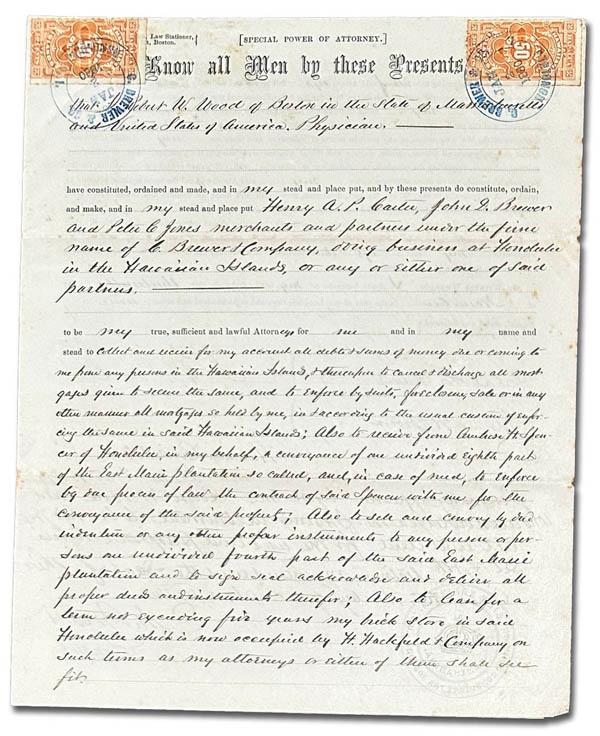 Law Stationer,
Boston.
[SPECIAL POWER OF ATTORNEY.]
Know all Men by these Presents
that Robert W. Wood of Boston in the State of Massachusetts
and United States of America. Physician.
have constituted, ordained and made, and in my stead and place put, and by these presents do constitute, ordain,
and make, and in my stead and place put Henry A. P. Carter, John D. Brewer
and Peter C Jones merchants and partners under the firm
name of C. Brewer & Company, doing business at Honolulu
in the Hawaiian Islands, or any or either one of said
partners.
to be my true, sufficient and lawful Attorneys for me and in my name and
stead to collect and receive for my account all debts & sums of money due or coming to
me from any persons in the Hawaiian Islands, & thereupon to cancel & discharge all mort
gages given to secure the same, and to enforce by suits, foreclosure, sale or in any
other manner all mortgages so held by me, in & according to the usual custom of enfor-
cing the same in said Hawaiian Islands; Also to receive from Ambrose H. Spen-
cer of Honolulu, in my behalf, a conveyance of one undivided eighth part
of the East Maui plantation so called, and, in case of need, to enforce
by due process of law the contract of said Spencer with me for the
conveyance of the said property; Also to sell and convey by deed
indenture or any other proper instruments to any person or per-
sons one undivided fourth part of the said East Maui
plantation and to sign seal acknowledge and deliver all
proper deeds and instruments therefor; Also to lease for a
term not exceeding five years my brick store in said
Honolulu which is now occupied by H. Hackfeld & Company on
such terms as my attorneys or either of them shall see
fit.
50
50
C. BREWER & CO.
JAN
C. BREWER &
JAN